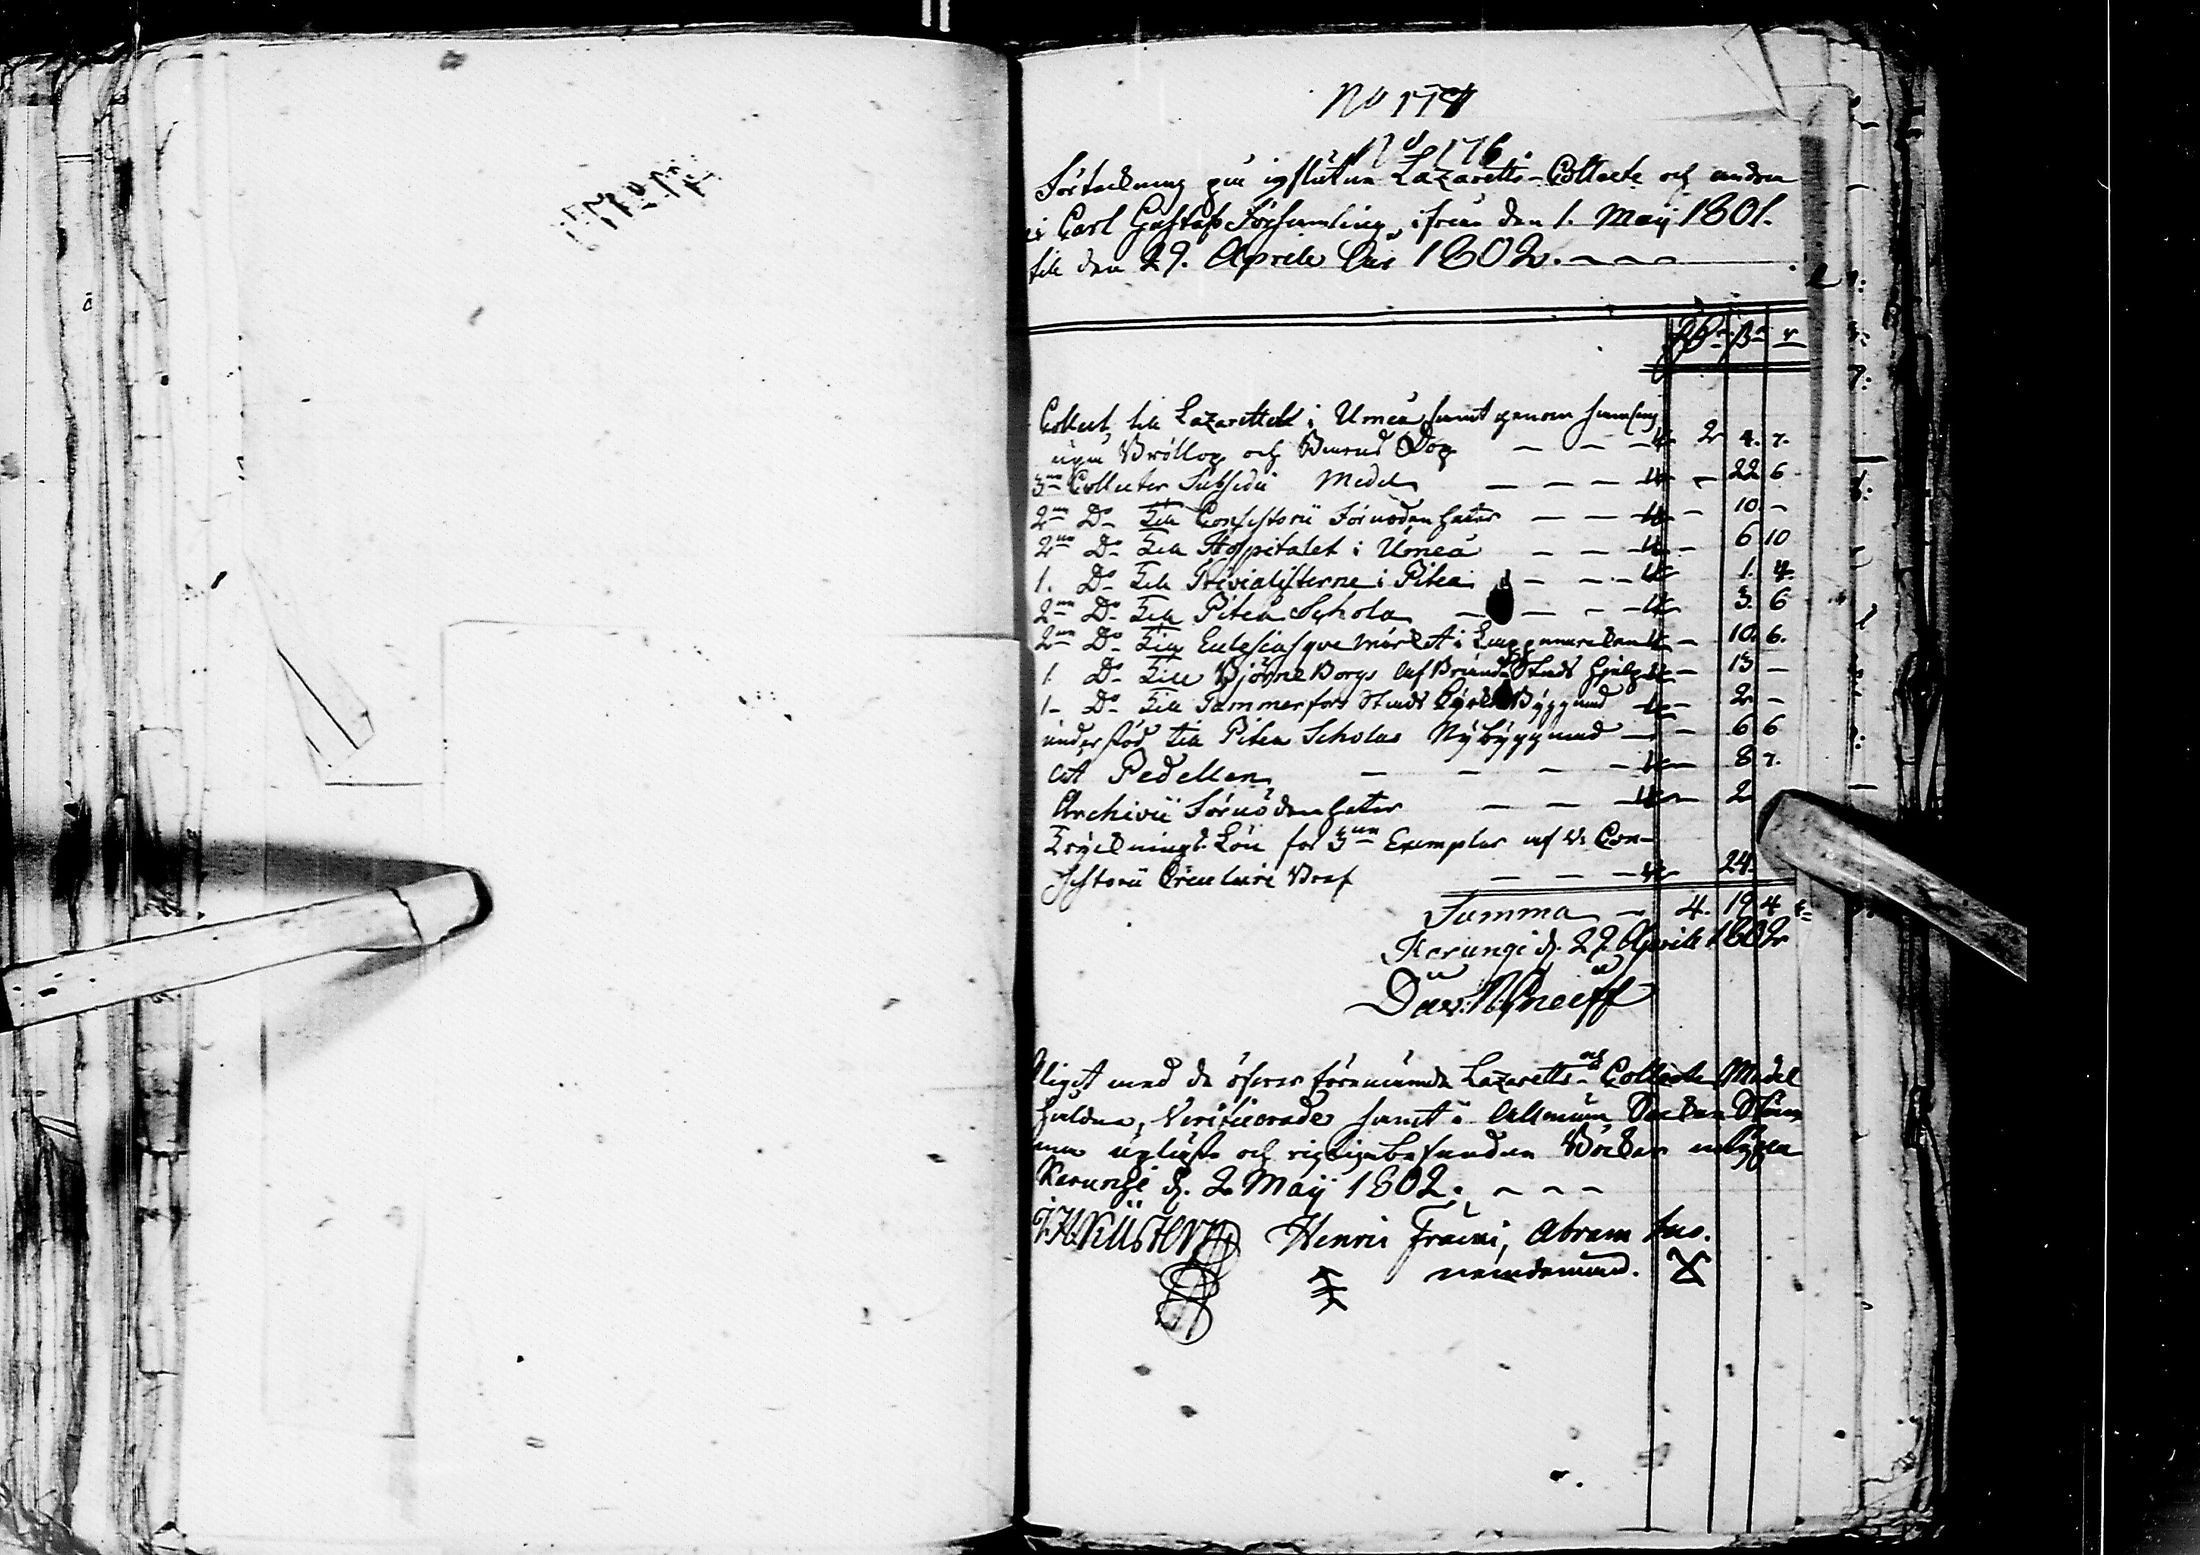 No 178
No 176.
Förteckning på influtna Lazaretts-Collecte och andra
i Carl Gustafs Församling, ifrån den 1. Maij 1801.
till den 29. Aprilis Åhr 1802.
Rd. ß. r
Collect till Lazarettet i Umeå samt genom
uppå Bröllop och Barns Dop 2 4. 7.
3ne Collecter Subsidii Medel 22 6
2ne Do Till Consistorii Förnödenheter 10. -
2ne Do Till Hospitalet i Umeå 6 10
1. Do Till Trivialisterne i Piteå 1. 4.
2ne Do Till Piteå Schola 3. 6
2ne Do Till Eclesiastique wärket i Lappmarcken 10. 6.
1 Do Till Björneborgs Afbrända Stads hjelp 13 -
1 Do Till Tammerfors Stads Kyrko Byggnad 2 -
understöd till Piteå Scholas Nybyggnad 6 6
åt Pedellen 8 7.
Archivii Förnödenheter 2
Tryckningslön för 3ne Exemplar af V. Con-
sistorii Circulaire Bref 24.
Summa 4. 19 4
Karungi d. 29 Aprilis 1802
Dav.
med de öfvan förenämda Lazaretts- och Collecte Medel
hållna, Verificerade samt i Allmän Sockne Stäm
ma uplästa och riktiga befundna Böcker
Karungi d. 2 Maij 1802.
Henric Fräcki, Abram
nämdeman.